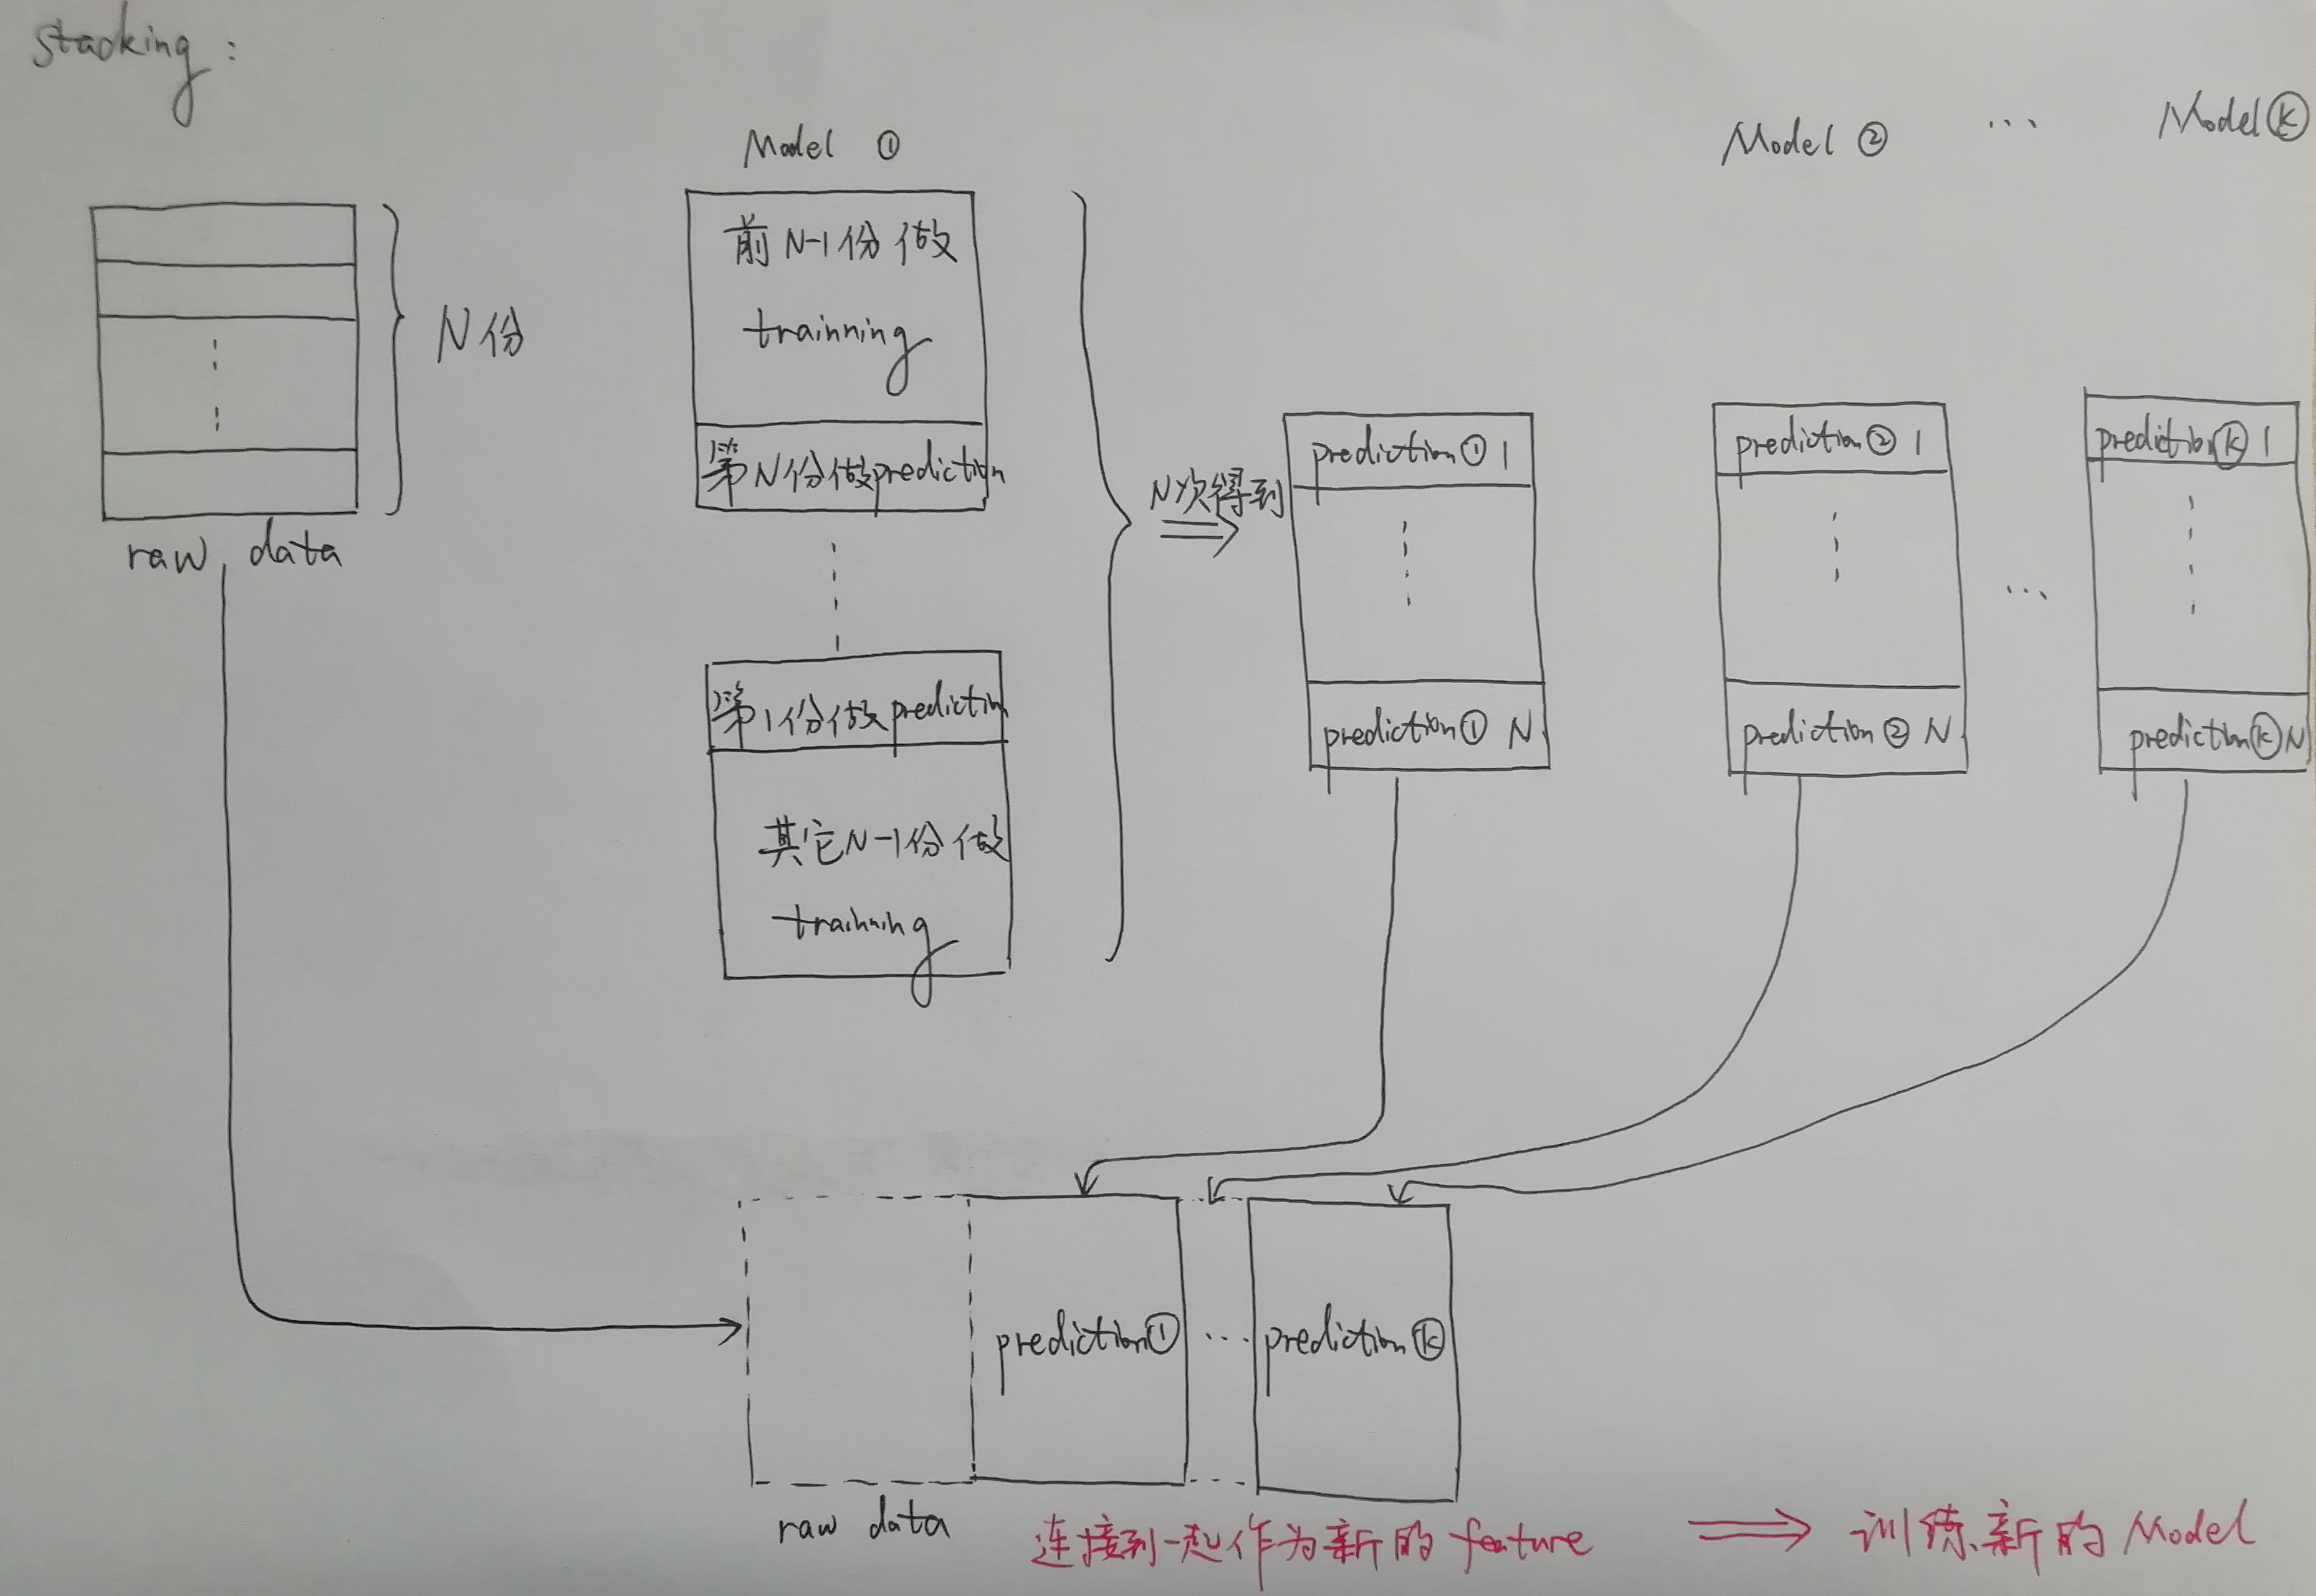 stacking:
Model ①
Model ②
...
Model Ⓚ
N份
raw data
前N-1份做
trainning
第N份做prediction
第1份做prediction
其它N-1份做
trainning
N次得到
prediction① 1
prediction① N
prediction② 1
prediction② N
...
predictionⓀ 1
predictionⓀ N
prediction①
...
predictionⓀ
raw data
连接到一起作为新的 feature
⟹ 训练新的 Model